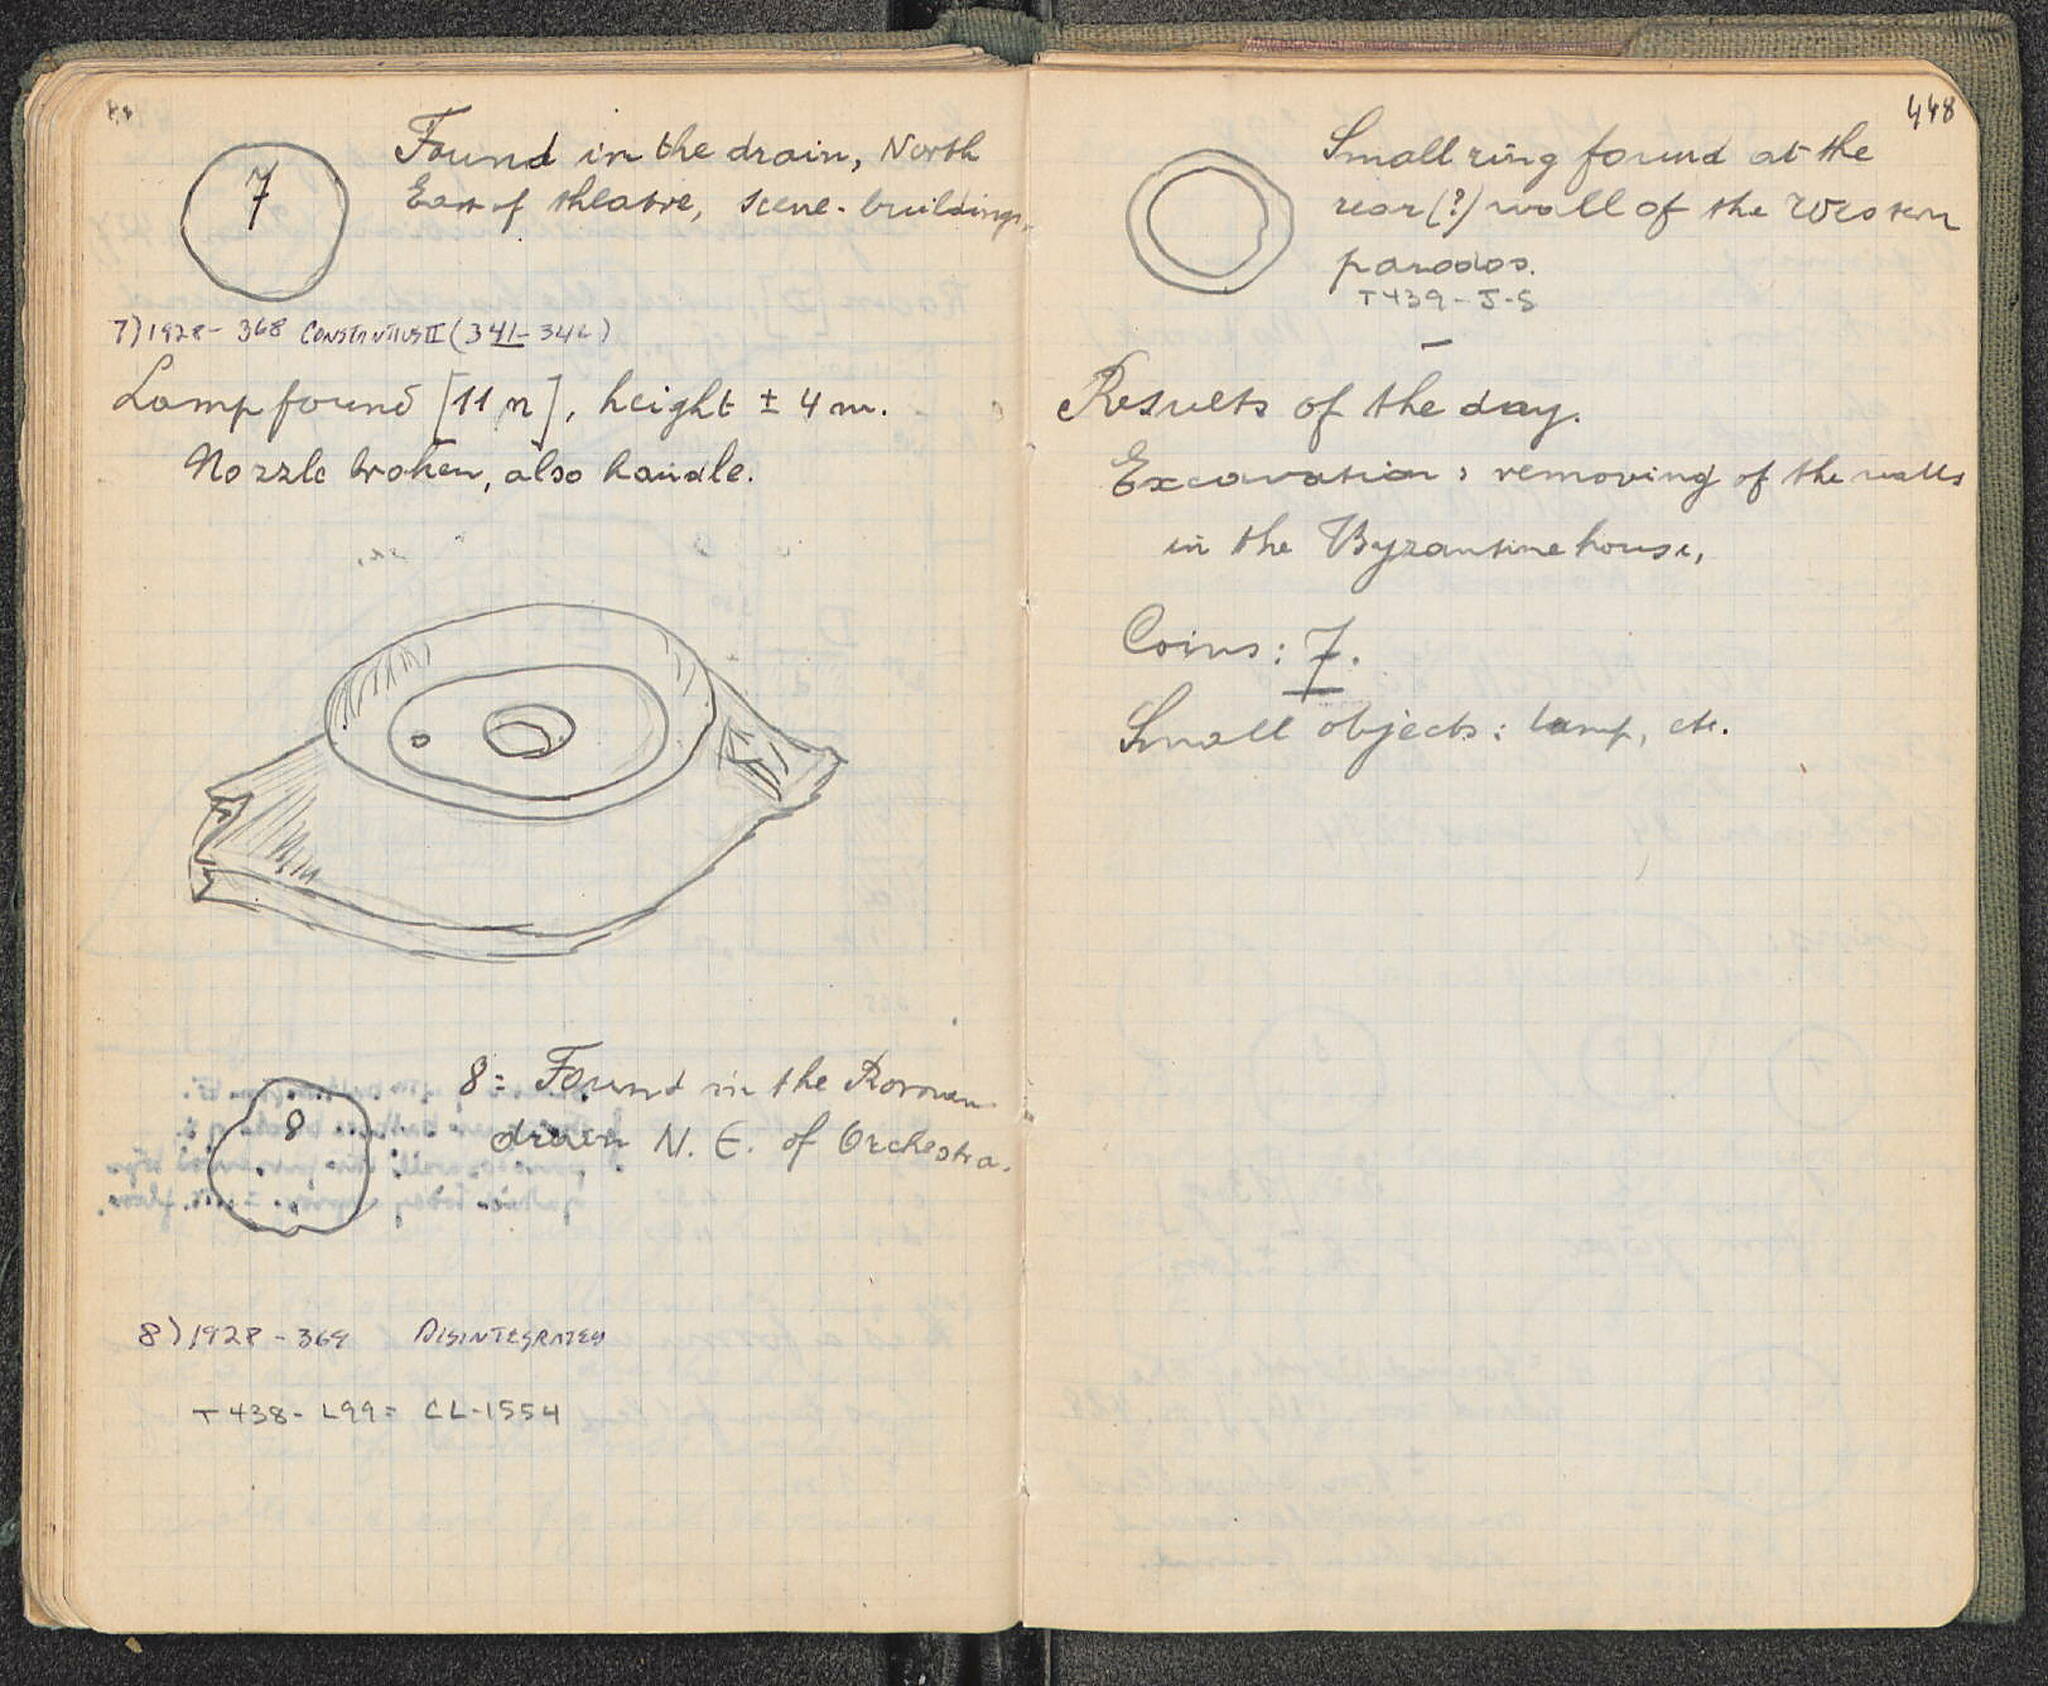 7
Found in the drain, North
East of theatre, scene-buildings.
7) 1928- 368 CONSTANTIUS II (341-346)
Lamp found [11 n], height ± 4 m.
Nozzle broken, also handle.
8
8= Found in the Roman
drain N. E. of Orchestra.
8) 1928 - 369 DISINTEGRATED
T 438- L99= CL-1554
448
Small ring found at the
rear (?) wall of the Western
parodos.
T439- J-5
Results of the day.
Excavation: removing of the walls
in the Byzantine house,
Coins: 7.
Small objects: lamp, etc.